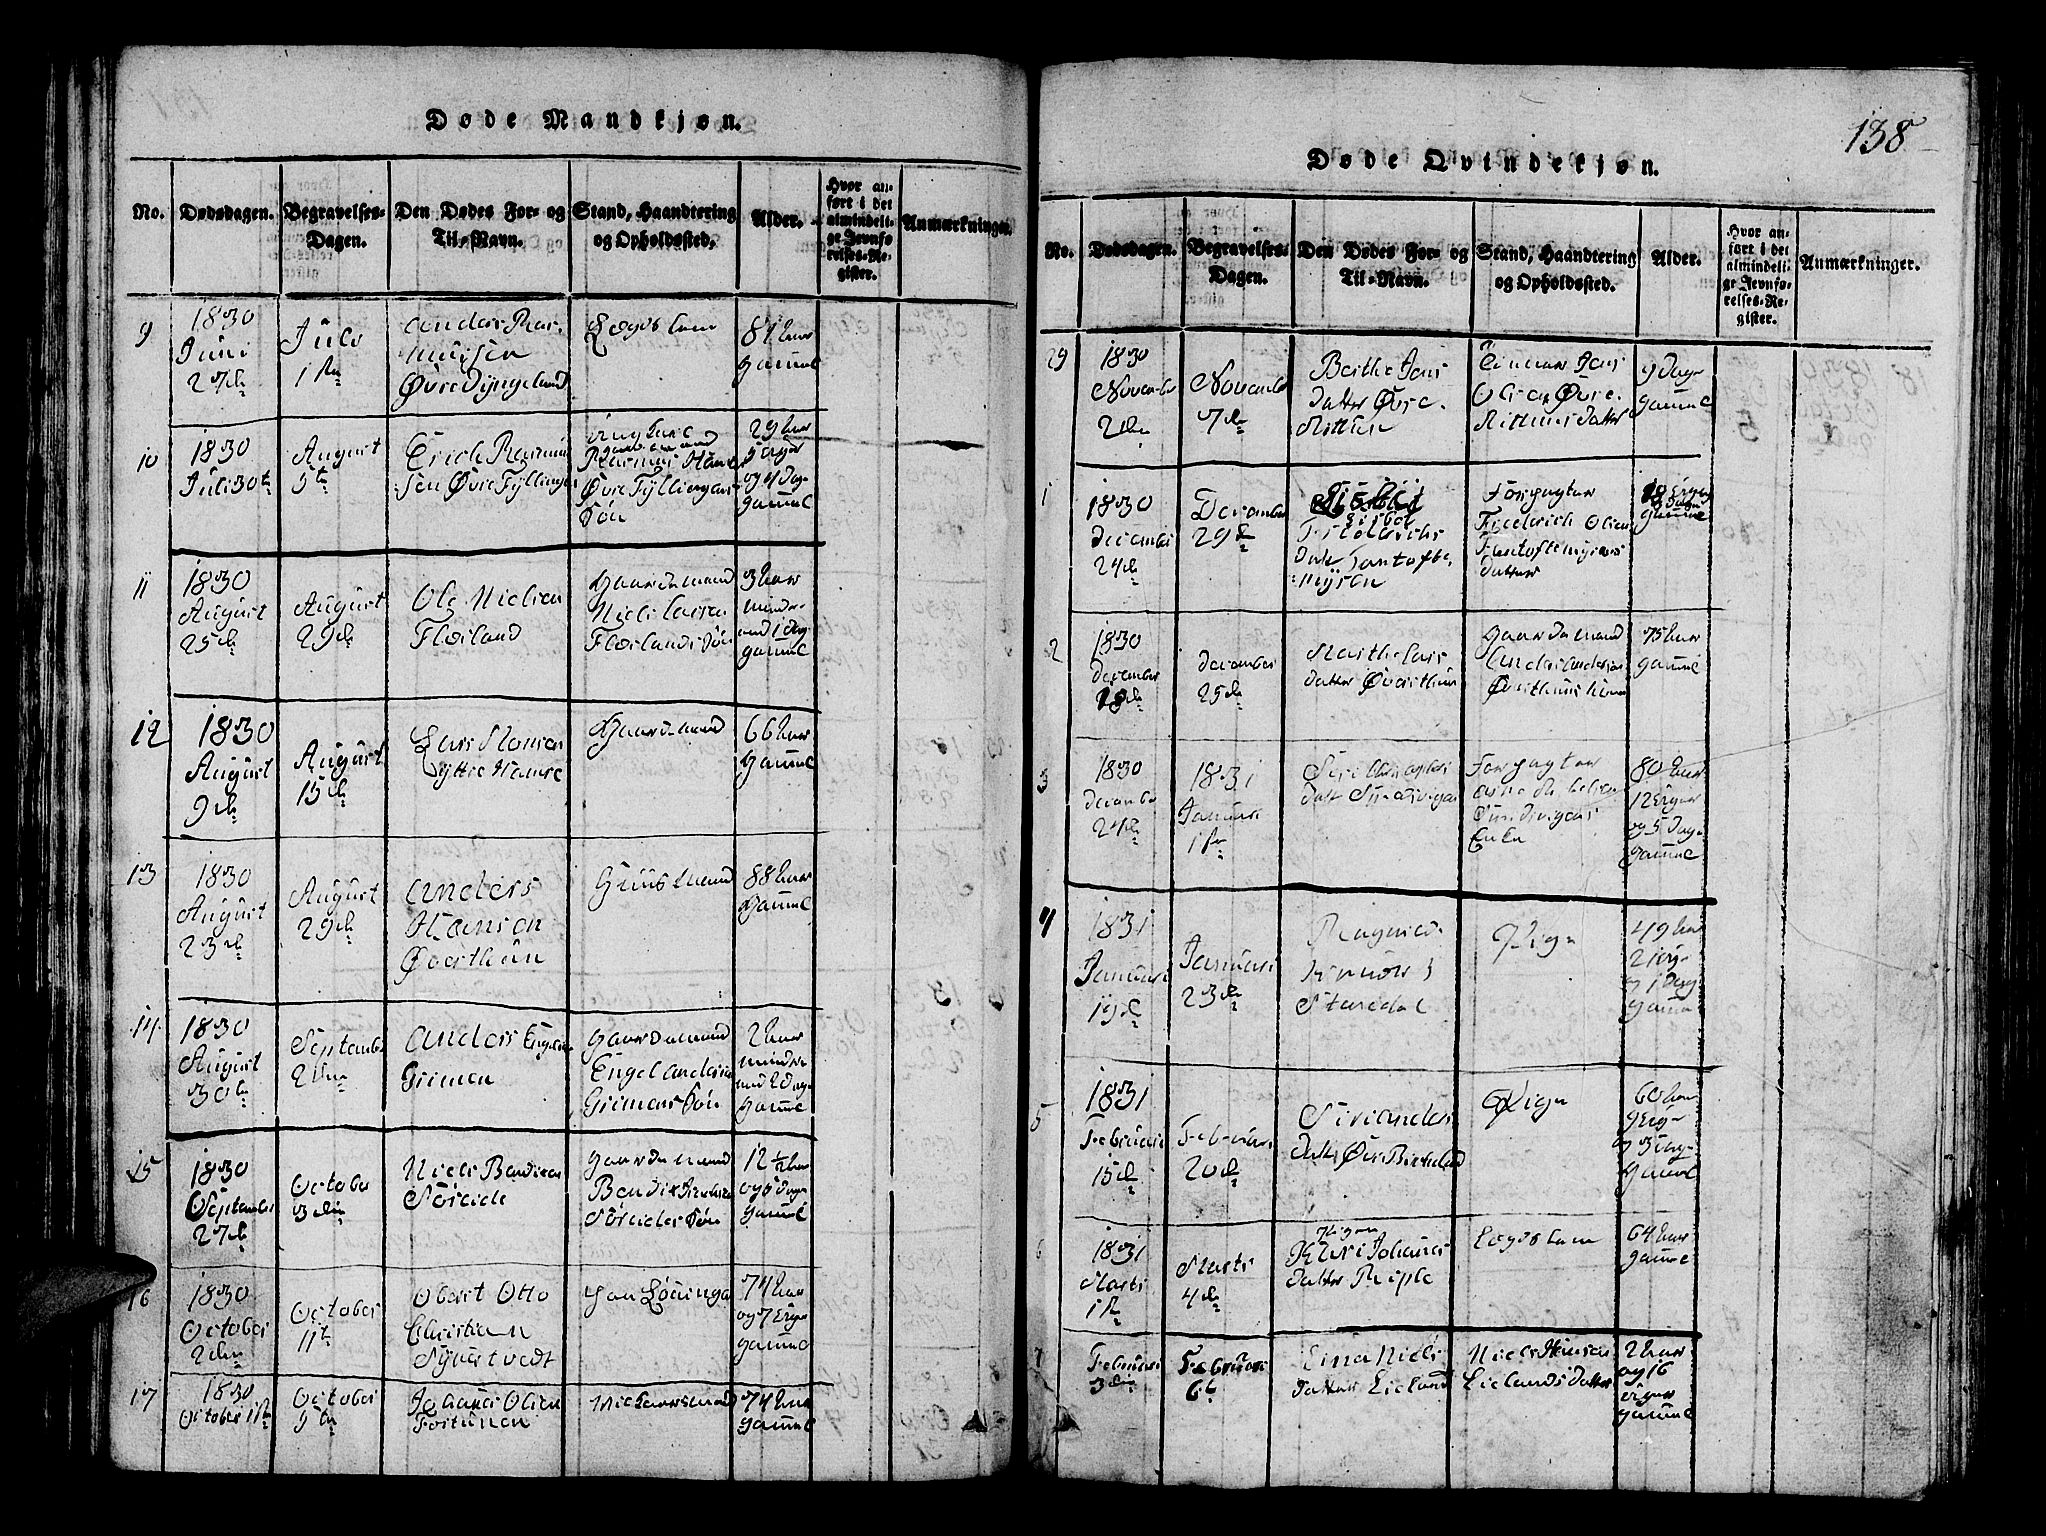 138
Døde Mandkjøn.
No.
Dødsdagen.
Begravelses-
Dagen.
Den Dødes For- og
Til-Navn.
Stand, Haandtering
og Opholdssted.
Alder.
Hvor an-
ført i det
almindeli-
ge Jevnfø-
relses-Re-
gister.
Anmærkninger.
9
1830
Juni
27de
Jule
1ste
Anders Ras-
musen
Øvre Dyngeland
Lægdslem
81 Aar
gammel
10
1830
Juli 30te
August
5te
Erich Rasmus
sen Øvre Fyllingen
gaardmand
Rasmus Hanse
Øvre Fyllingens
Søn
29 Aar
og 4 Dag
gammel
11
1830
August
25de
August
29de
Ole Nielsen
Fløeland
Gaardemand
Niels Larsen
Fløelands Søn
3 Aar
mindre
end 1 Dag
gammel
12
1830
August
9de
August
15de
Lars Monsen
Yttre Hamre
Gaardmand
66 Aar
gammel
13
1830
August
23de
August
29de
Anders
Hansen
Øvrethun
Huusmand
88 Aar
gammel
14
1830
August
30te
September
2den
Anders Engelsen
Grimen
Gaardemand
Engel Andersen
Grimens Søn
2 Aar
mindre
end 2 Dage
gammel
15
1830
September
27de
October
3die
Niels Bendixen
Søreide
Gaardemand
Bendix
Søreides Søn
12 1/2 Aar
og 5 Dage
gammel
16
1830
October
2den
October
11te
Obert Otto
Christian
Syvertvedt
74 Aar
og 7 Uger
gammel
17
1830
October 11te
October
9te
Johannes Olsen
Fortunen
74 Aar
gammel
Døde Qvindekjøn.
No.
Dødsdagen.
Begravelses-
Dagen.
Den Dødes For- og
Til-Navn.
Stand, Haandtering
og Opholdssted.
Alder.
Hvor an-
ført i det
almindeli-
ge Jevnfø-
relses-Re-
gister.
Anmærkninger.
29
1830
November
2de
November
7de
Berthe Jens
datter Øvre
Mittun
Jens
Olsen Øvre
Mittuns Datter
9 Dage
gammel
1
1830
December
24de
December
29de
Sisbel
Friderichs
datter Fantofte
myren
Forpagter
Frederich Olsen
Fantoftemyrens
datter
gammel
2
1830
December
December
25de
Marthe Lars
datter Øvrethun
Gaardemand
Anders Andersen
Øvrethuns Kone
75 Aar
gammel
3
1830
December
24de
1831
Januari
1ste
Forpagter
Enke
80 Aar
12 Uger
og 5 Dage
gammel
4
1831
Januari
19de
Januari
23de
Ragnilde
Knuds
Staredal
Pige
49 Aar
2 Uge
og 1 Dag
gammel
5
1831
Februari
15de
Februari
20de
Siri Anders
datter Øvre Birkeland
Pige
60 Aar
gammel
6
1831
Marts
1ste
Marts
4de
Pigen
Kari Johannes
datter Reiple
Lægdslem
64 Aar
gammel
7
Februari
3die
Februari
6te
Niels
datter Lieland
Niels Hansen
Lielands Datter
2 Aar
og 16
Uger
gammel